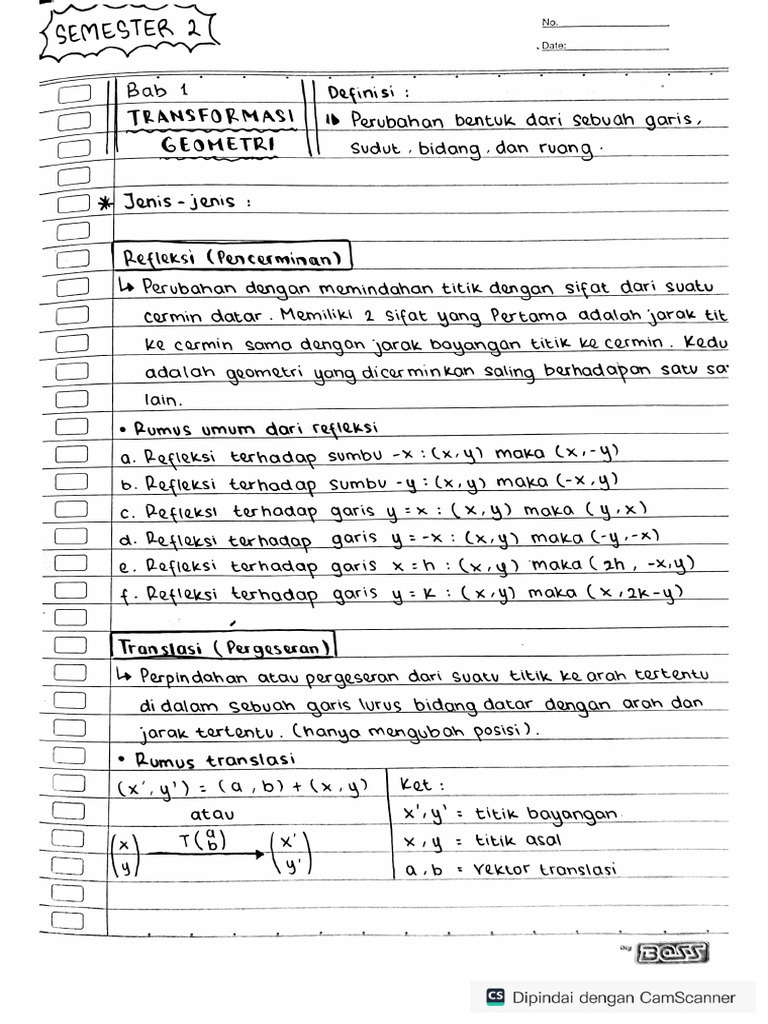 SEMESTER 2
No.
Date:
Bab 1
TRANSFORMASI
GEOMETRI
Definisi :
Perubahan bentuk dari sebuah garis,
sudut, bidang, dan ruang.
* Jenis-jenis :
Refleksi (Pencerminan)
↳ Perubahan dengan memindahan titik dengan sifat dari suatu
cermin datar. Memiliki 2 sifat yang Pertama adalah jarak tit
ke cermin sama dengan jarak bayangan titik ke cermin. Kedu
adalah geometri yang dicerminkan saling berhadapan satu sa
lain.
• Rumus umum dari refleksi
a. Refleksi terhadap sumbu -x : (x,y) maka (x,-y)
b. Refleksi terhadap sumbu -y : (x,y) maka (-x,y)
c. Refleksi terhadap garis y=x : (x,y) maka (y,x)
d. Refleksi terhadap garis y=-x : (x,y) maka (-y,-x)
e. Refleksi terhadap garis x=h : (x,y) maka (2h, -x,y)
f. Refleksi terhadap garis y=k : (x,y) maka (x,2k-y)
Translasi (Pergeseran)
↳ Perpindahan atau pergeseran dari suatu titik ke arah tertentu
di dalam sebuah garis lurus bidang datar dengan arah dan
jarak tertentu. (hanya mengubah posisi).
• Rumus translasi
(x',y') = (a,b) + (x,y)
atau
(x y) T(a b) → (x' y')
Ket :
x',y' = titik bayangan
x,y = titik asal
a,b = vektor translasi
Big BOSS
CS Dipindai dengan CamScanner